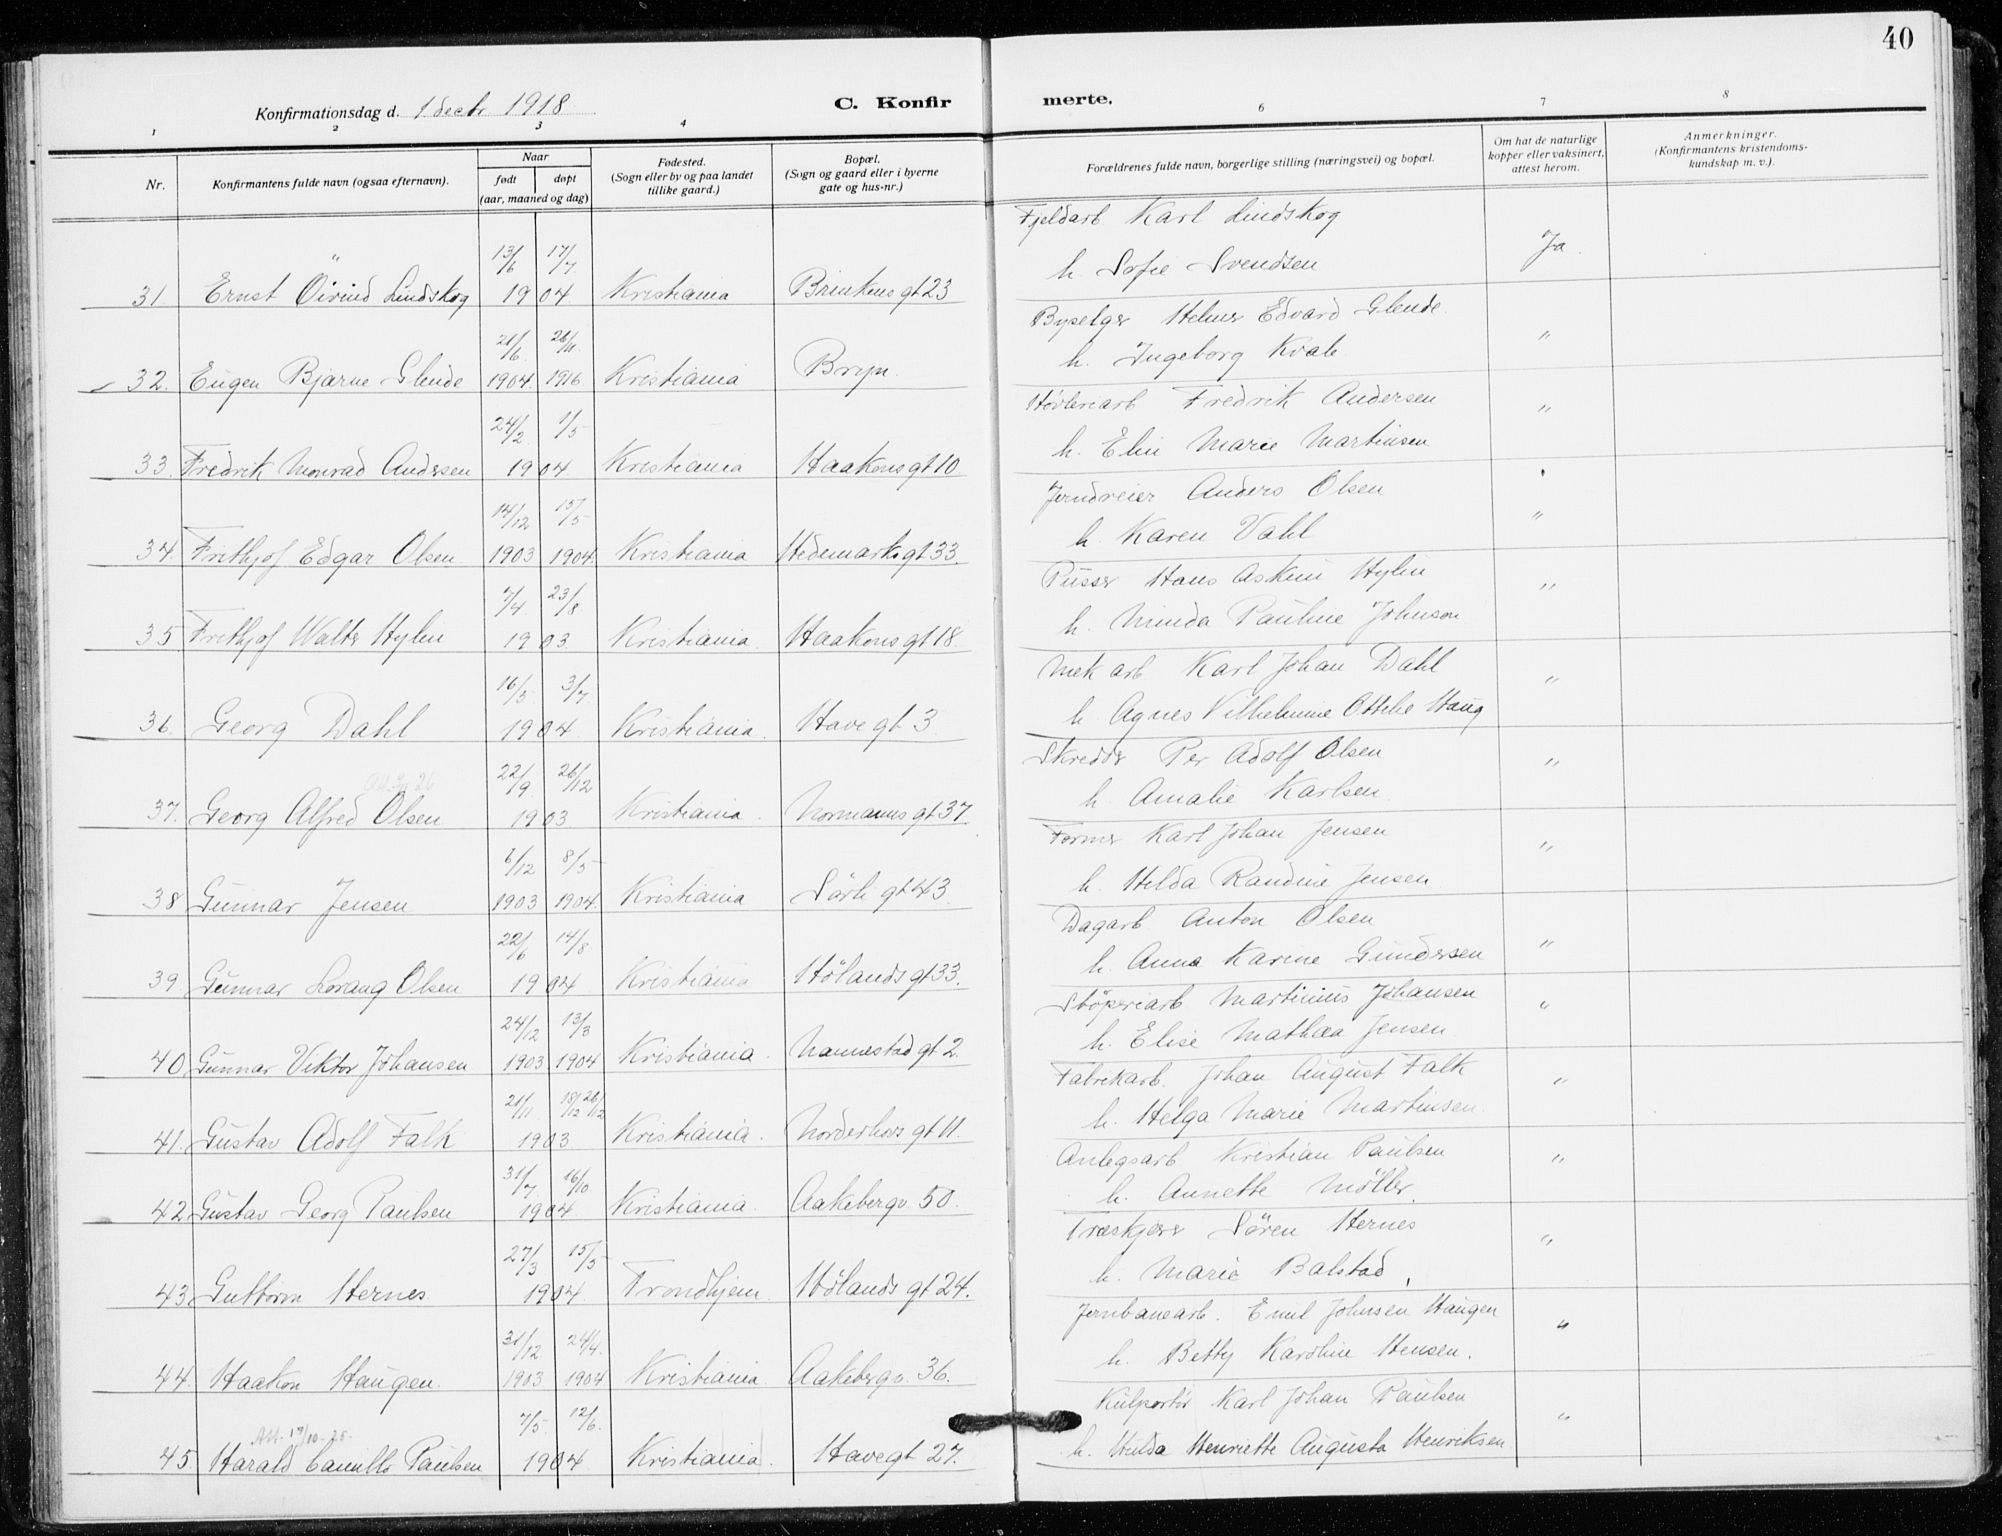 40
Konfirmationsdag d. 1 decbr 1918
C. Konfir merte.
1 2 3 4 6 7 8
Nr.
Konfirmantens fulde navn (ogsaa efternavn).
Naar
født døpt
(aar, maaned og dag)
Fødested.
(Sogn eller by og paa landet
tillike gaard.)
Bopæl.
(Sogn og gaard eller i byerne
gate og hus-nr.)
Forældrenes fulde navn, borgerlige stilling (næringsvei) og bopæl.
Om hat de naturlige
kopper eller vaksinert,
attest herom.
Anmerkninger.
(Konfirmantens kristendoms-
kundskap m. v.).
13/6 17/7 Fjeldarb Karl Lindskog
31 Ernst Öivind Lindskog 1904 Kristiania Brinkens gt 23 h. Sofie Svendsen Ja
21/6 26/11 Byselger Helmer Edvard Glende
32. Eugen Bjarne Glende 1904. 1916 Kristiania Bryn. h. Ingeborg Kvale "
24/2 1/5 Høvleriarb Fredrik Andersen
33. Fredrik Monrad Andersen 1904 Kristiania Haakons gt 10 h. Elin Marie Martinsen "
14/12 15/5 Jerndreier Anders Olsen
34. Frithjof Edgar Olsen 1903 1904. Kristiania Hedemarks gt 33. h. Karen Vahl "
7/4 23/8 Pusser Hans Askim Hylin
35 Frithjof Walter Hylin 1903 Kristiania. Haakons gt 18. h. Minda Pauline Johnson "
16/5 3/7 Mek arb Karl Johan Dahl
36. Georg Dahl 1904. Kristiania. Have gt 3. h. Agnes Vilhelmine Ottilie Haug "
22/9 26/12 Skredder Per Adolf Olsen
37. Georg Alfred Olsen 1903 Kristiania. Normanns gt 37. h. Amalie Karlsen "
6/12 8/5 Former Karl Johan Jensen
38 Gunnar Jensen 1903 1904. Kristiania Sørli gt 43. h. Hilda Randine Jensen "
22/6 14/8 Dagarb Anton Olsen
39. Gunnar Lorang Olsen 1904 Kristiania Hølands gt 33. h. Anna Karine Gundersen "
24/12 13/3 Støperiarb Martinius Johansen
40 Gunnar Viktor Johansen 1903 1904 Kristiania. Nannestad gt 2. h. Elise Mathea Jensen "
21/11 18/12 26/12 Fabrikarb. Johan August Falk
41. Gustav Adolf Falk 1903 Kristiania. Norderhovs gt 11. h. Helga Marie Martinsen "
31/7 16/10 Anlegsarb Kristian Paulsen
42. Gustav Georg Paulsen 1904. Kristiania. Aakebergv. 50. h. Annette Møller. "
27/3 15/5 Træskjærer Sören Hernes
43. Guttorm Hernes. 1904. Trondhjem. Hølands gt 24. h. Marie Balstad. "
31/12 24/4. Jernbanearb. Emil Johnsen Haugen
44. Haakon Haugen. 1903 1904 Kristiania. Aakebergv. 36. h. Betty Karoline Hensen. "
Att. 17/10-25. 7/5 12/6. Kulportör Karl Johan Paulsen
45. Harald Camillo Paulsen 1904 Kristiania. Have gt 27. h. Hulda Henriette Augusta Henriksen "